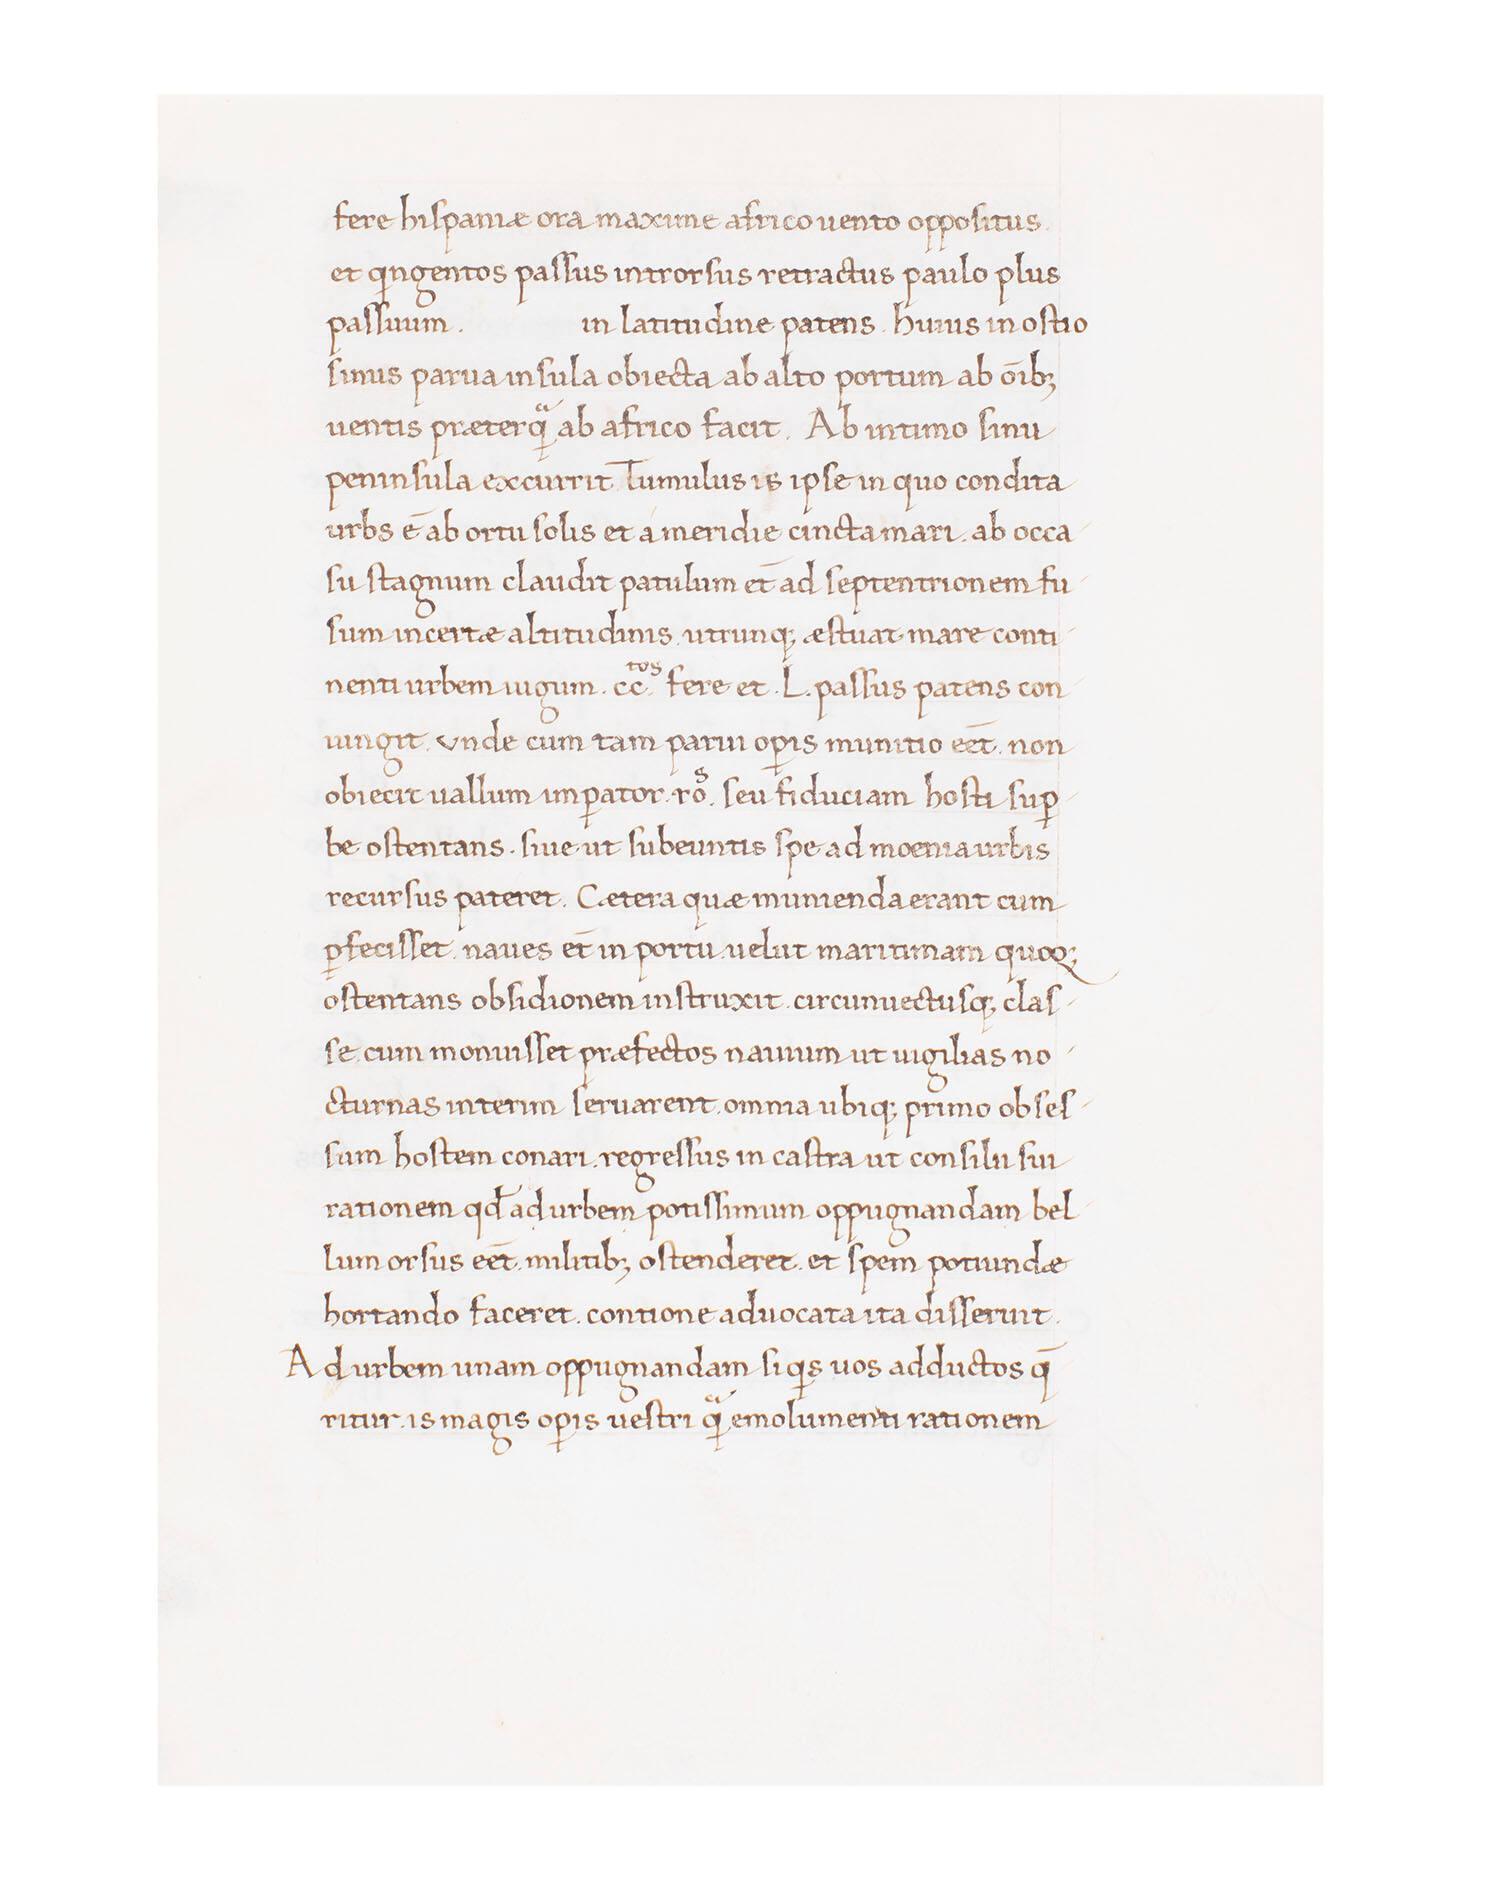 fere hispaniæ ora maxime africo uento oppositus.
et qingentos passus introrsus retractus paulo plus
passuum. in latitudine patens. huius in ostio
sinus parua insula obiecta ab alto portum ab oībꝫ
uentis præterqᷓ ab africo facit. Ab intimo sinu
peninsula excurrit Tumulus is ipse in quo condita
urbs ē ab ortu solis et á meridie cincta mari. ab occa
su stagnum claudit patulum et̄ ad septentrionem fu
sum incertæ altitudinis. utrunqꝫ æstuat mare conti
nenti urbem iugum. cc.ᵗᵒˢ fere et .L. passus patens con
iungit. Vnde cum tam parui oꝑis munitio eēt. non
obiecit uallum imꝑator. roˢ. seu fiduciam hosti suꝑ
be ostentans. siue ut subeuntis spe ad moenia urbis
recursus pateret. Cætera quæ munienda erant cum
ꝑfecisset. naues et̄ in portu. uelut maritimam quoqꝫ
ostentans obsidionem instruxit. circunuectusqꝫ clas-
se. cum monuisset præfectos nauium ut uigilias no
cturnas interim seruarent. omnia ubiqꝫ primo obses-
sum hostem conari. regressus in castra ut consilii sui
rationem qđ ad urbem potissimum oppugnandam bel
lum orsus eēt. militibꝫ ostenderet. et spem potiundæ
hortando faceret. contione aduocata ita disseruit.
Ad urbem unam oppugnandam si qis uos adductos q̄
ritur. is magis oꝑis uestri qᷓ emolumenti rationem